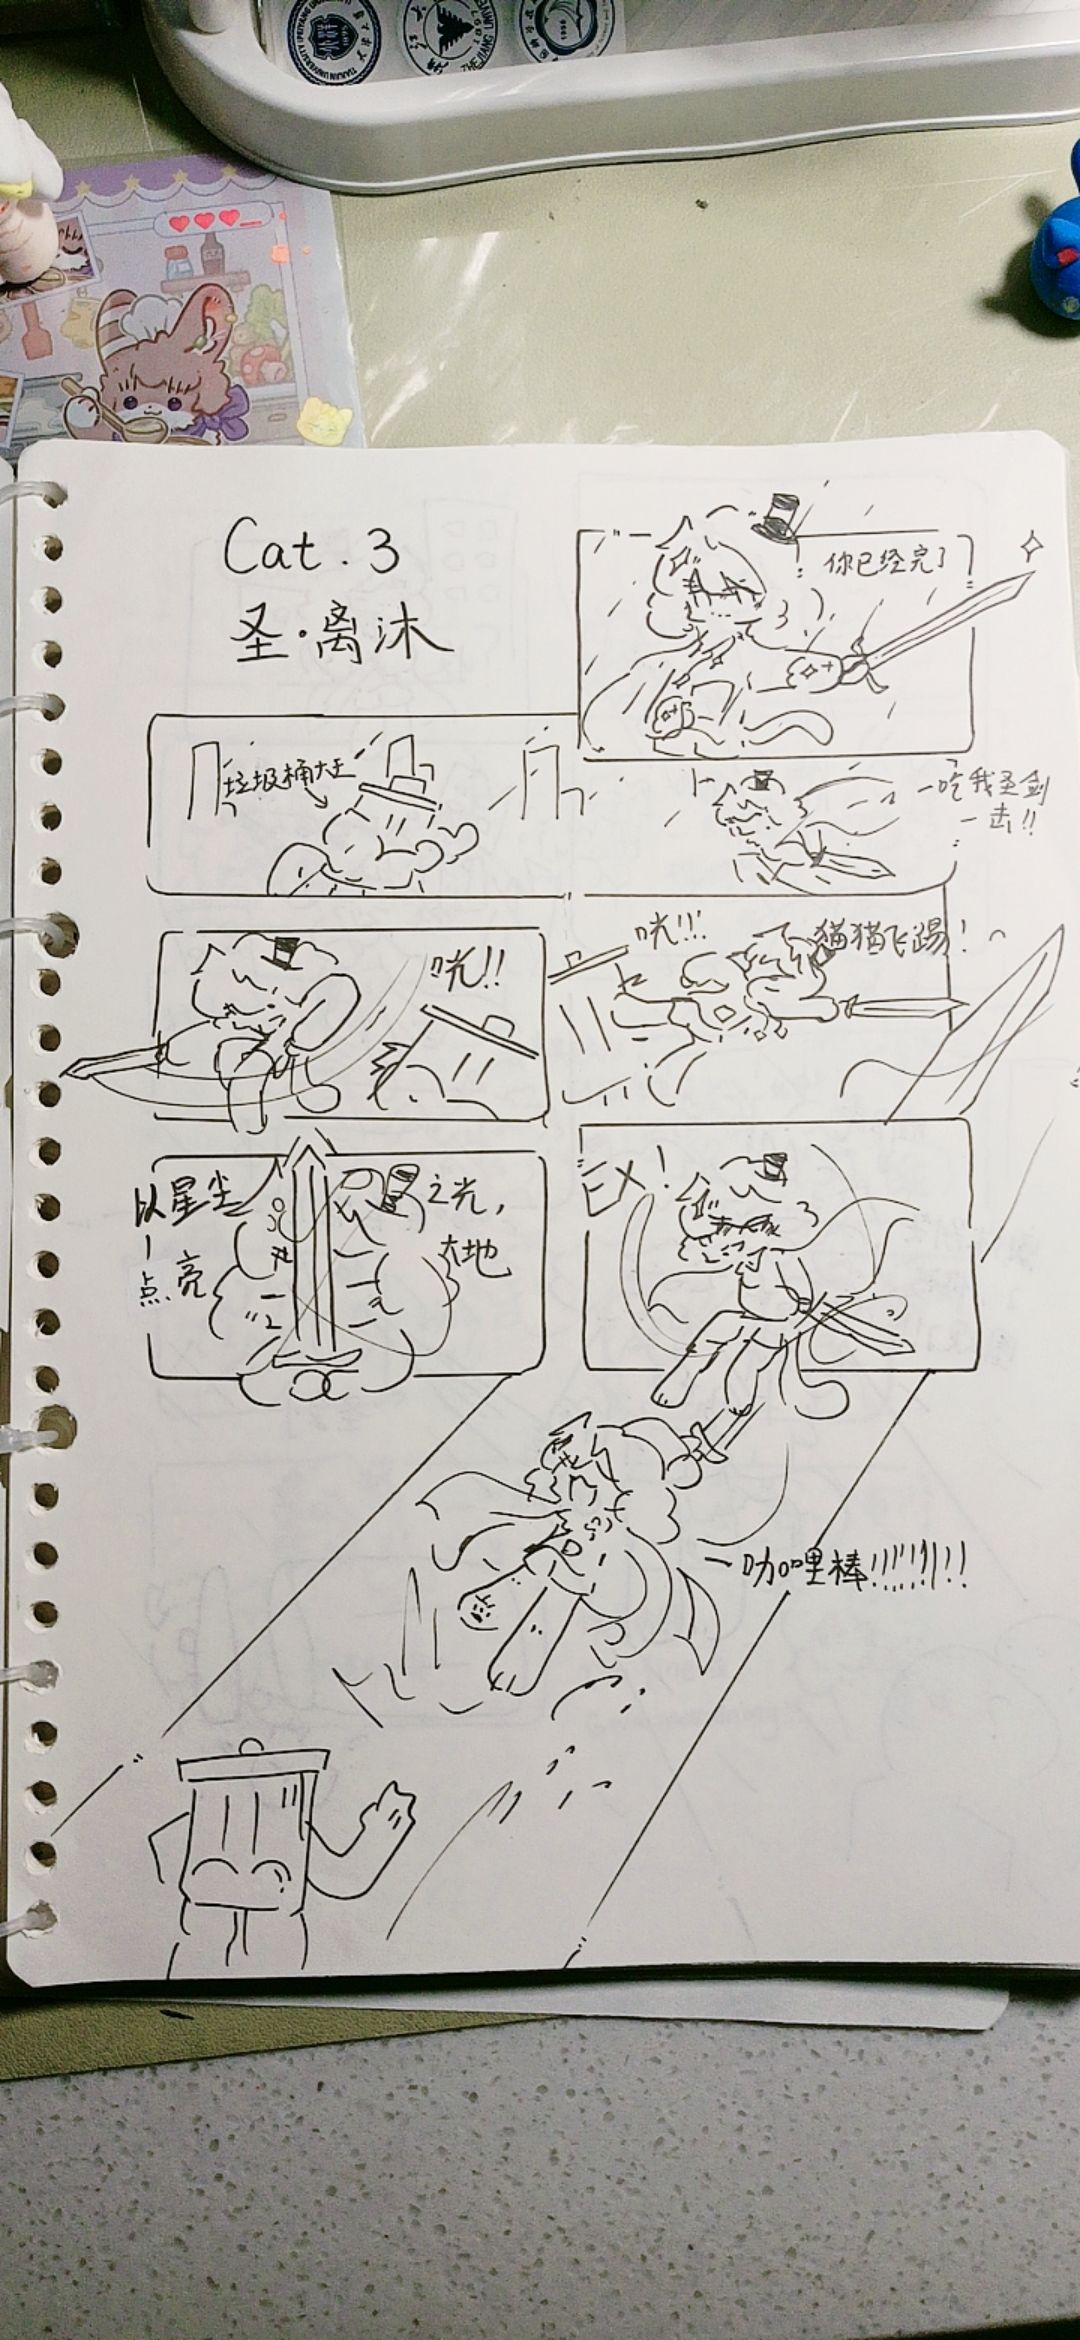 Cat.3
圣·离沐
你已经完了
垃圾桶大王
吃我圣剑
一击!!
咣!!
咣!!!
猫猫飞踢!
以星尘
之光,
点亮
大地
EX!
咖喱棒!!!!!!!!!
TIANJIN UNIVERSITY